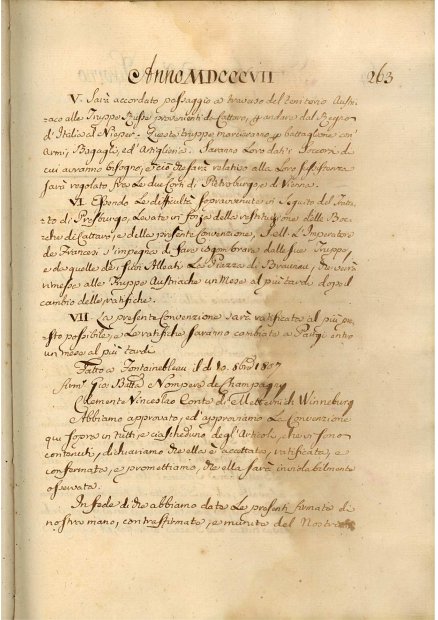 Anno MDCCCVII 263
V. Sarà accordato passaggio a traverso del territorio Aust-
riaco alle Truppe Russe provenienti da Cattaro, p andare dal Regno
d'Italia al Niester. Queste truppe marcieranno p battaglione con
Armi, Bagaglie, ed Artiglieria. Saranno Loro dati i soccorsi di
cui avranno bisogno, e ciò che sarà relativo alla Loro sussistenza
sarà regolato fra Le due Corti di Pietroburgo, e di Vienna.
VI. Essendo Le difficultà sopravvenute in seguito del Trat-
tato di Presburgo, Levate in forza della restituzione delle Boc-
che di Cattaro, e della presente Convenzione, S. M. L'Imperatore
de Francesi s'impegna di fare sgombrare dalle sue Truppe,
e da quelle de' suoi Alleati La Piazza di Braunau, che verrà
rimessa alle Truppe Austriache un Mese al più tardi dopo il
cambio delle ratifiche.
VII. La presente Convenzione sarà ratificata al più pre-
sto possibile, e Le ratifiche saranno cambiate a Parigi entro
un mese al più tardi
Fatto a Fontainebleau il dì 10. 8bre 1807
Firm. Gio: Batta Nompere de Champagny
Clemente Vinceslao Conte di Metternich Winneburg
Abbiamo approvato, ed approviamo La Convenzione
qui sopra in tutti, e ciascheduno degl'Articoli, che vi sono
contenuti, dichiariamo che ella è accettata, ratificata, e
confermata, e promettiamo, che ella sarà inviolabilmente
osservata.
In fede di che abbiamo data Le presenti firmate di
nostra mano, contrassignate, e munite del Nostro